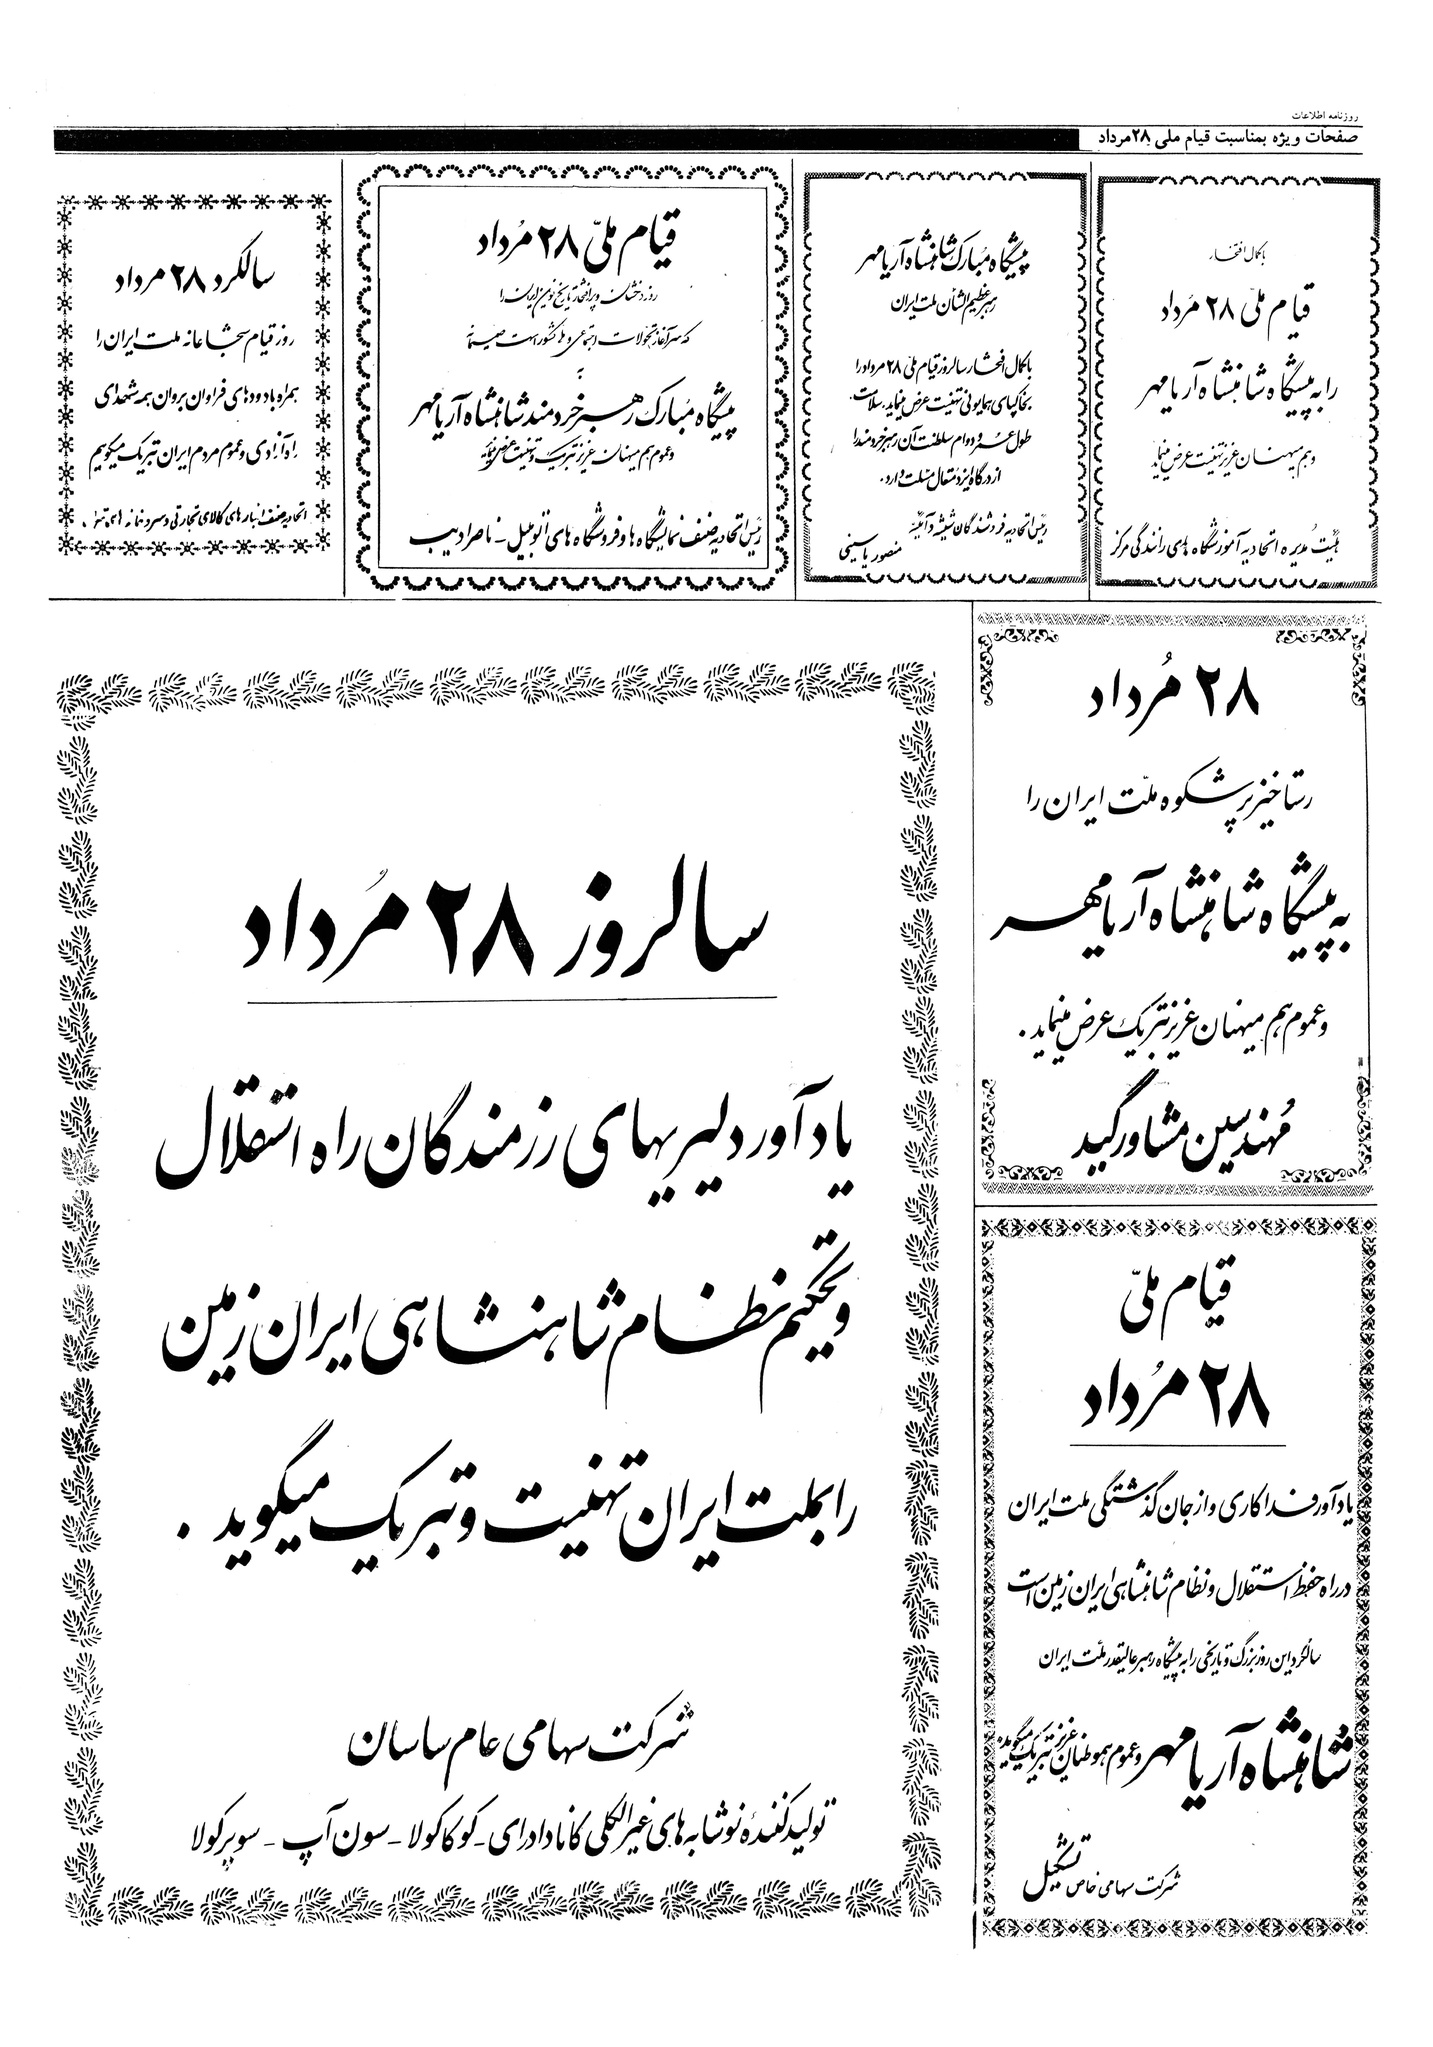 روزنامه اطلاعات
صفحات ویژه بمناسبت قیام ملی ۲۸ مرداد
با کمال افتخار
قیام ملی ۲۸ مُرداد
را به پیشگاه شاهنشاه آریامهر
و هم میهنان عزیز تهنیت عرض مینماید
هیئت مُدیره اتحادیه آموزشگاه های رانندگی مرکز
پیشگاه مُبارک شاهنشاه آریامهر
رهبر عظیم الشأن ملت ایران
با کمال افتخار سالروز قیام ملی ۲۸ مرداد را
بخاکپای همایونی تهنیت عرض مینماید، سلامت
طول عمر و دوام سلطنت آن رهبر خردمند را
از درگاه ایزد متعال مسئلت دارد.
رئیس اتحادیه فروشندگان شیشه و آئینه
منصور یاسینی
قیام ملیّ ۲۸ مُرداد
روز درخشان و پرافتخار تاریخ نوین ایران را
که سرآغاز تحولات اجتماعی و ملی کشور است صمیمانه
به
پیشگاه مُبارک رهبر خردمند شاهنشاه آریامهر
و عموم هم میهنان عزیز تبریک و تهنیت عرض میکنیم
رئیس اتحادیه صنف نمایشگاه ها و فروشگاه های اتومبیل - ناصر ادیب
سالگرد ۲۸ مرداد
روز قیام شجاعانه ملت ایران را
همراه با درودهای فراوان بروان همه شهدای
راه آزادی و عموم مردم ایران تبریک میگوییم
اتحادیه صنف انبارهای کالای تجارتی و سردخانه های تهران
۲۸ مُرداد
رستاخیز پرشکوه ملّت ایران را
به پیشگاه شاهنشاه آریامهر
و عموم هم میهنان عزیز تبریک عرض مینماید.
مُهندسین مشاور گبید
قیام ملیّ
۲۸ مُرداد
یادآور فداکاری و از جان گذشتگی ملت ایران
در راه حفظ استقلال و نظام شاهنشاهی ایران زمین است
سالگرد این روز بزرگ و تاریخی را به پیشگاه رهبر عالیقدر ملّت ایران
شاهنشاه آریامهر و عموم هموطنان عزیز تبریک میگوید.
شرکت سهامی خاص تشکیل
سالروز ۲۸ مُرداد
یادآور دلیریهای رزمندگان راه استقلال
و تحکیم نظام شاهنشاهی ایران زمین
را بملت ایران تهنیت و تبریک میگوید.
شرکت سهامی عام ساسان
تولید کنندهٔ نوشابه های غیرالکلی کانادادرای - کوکاکولا - سون آپ - سوپرکولا